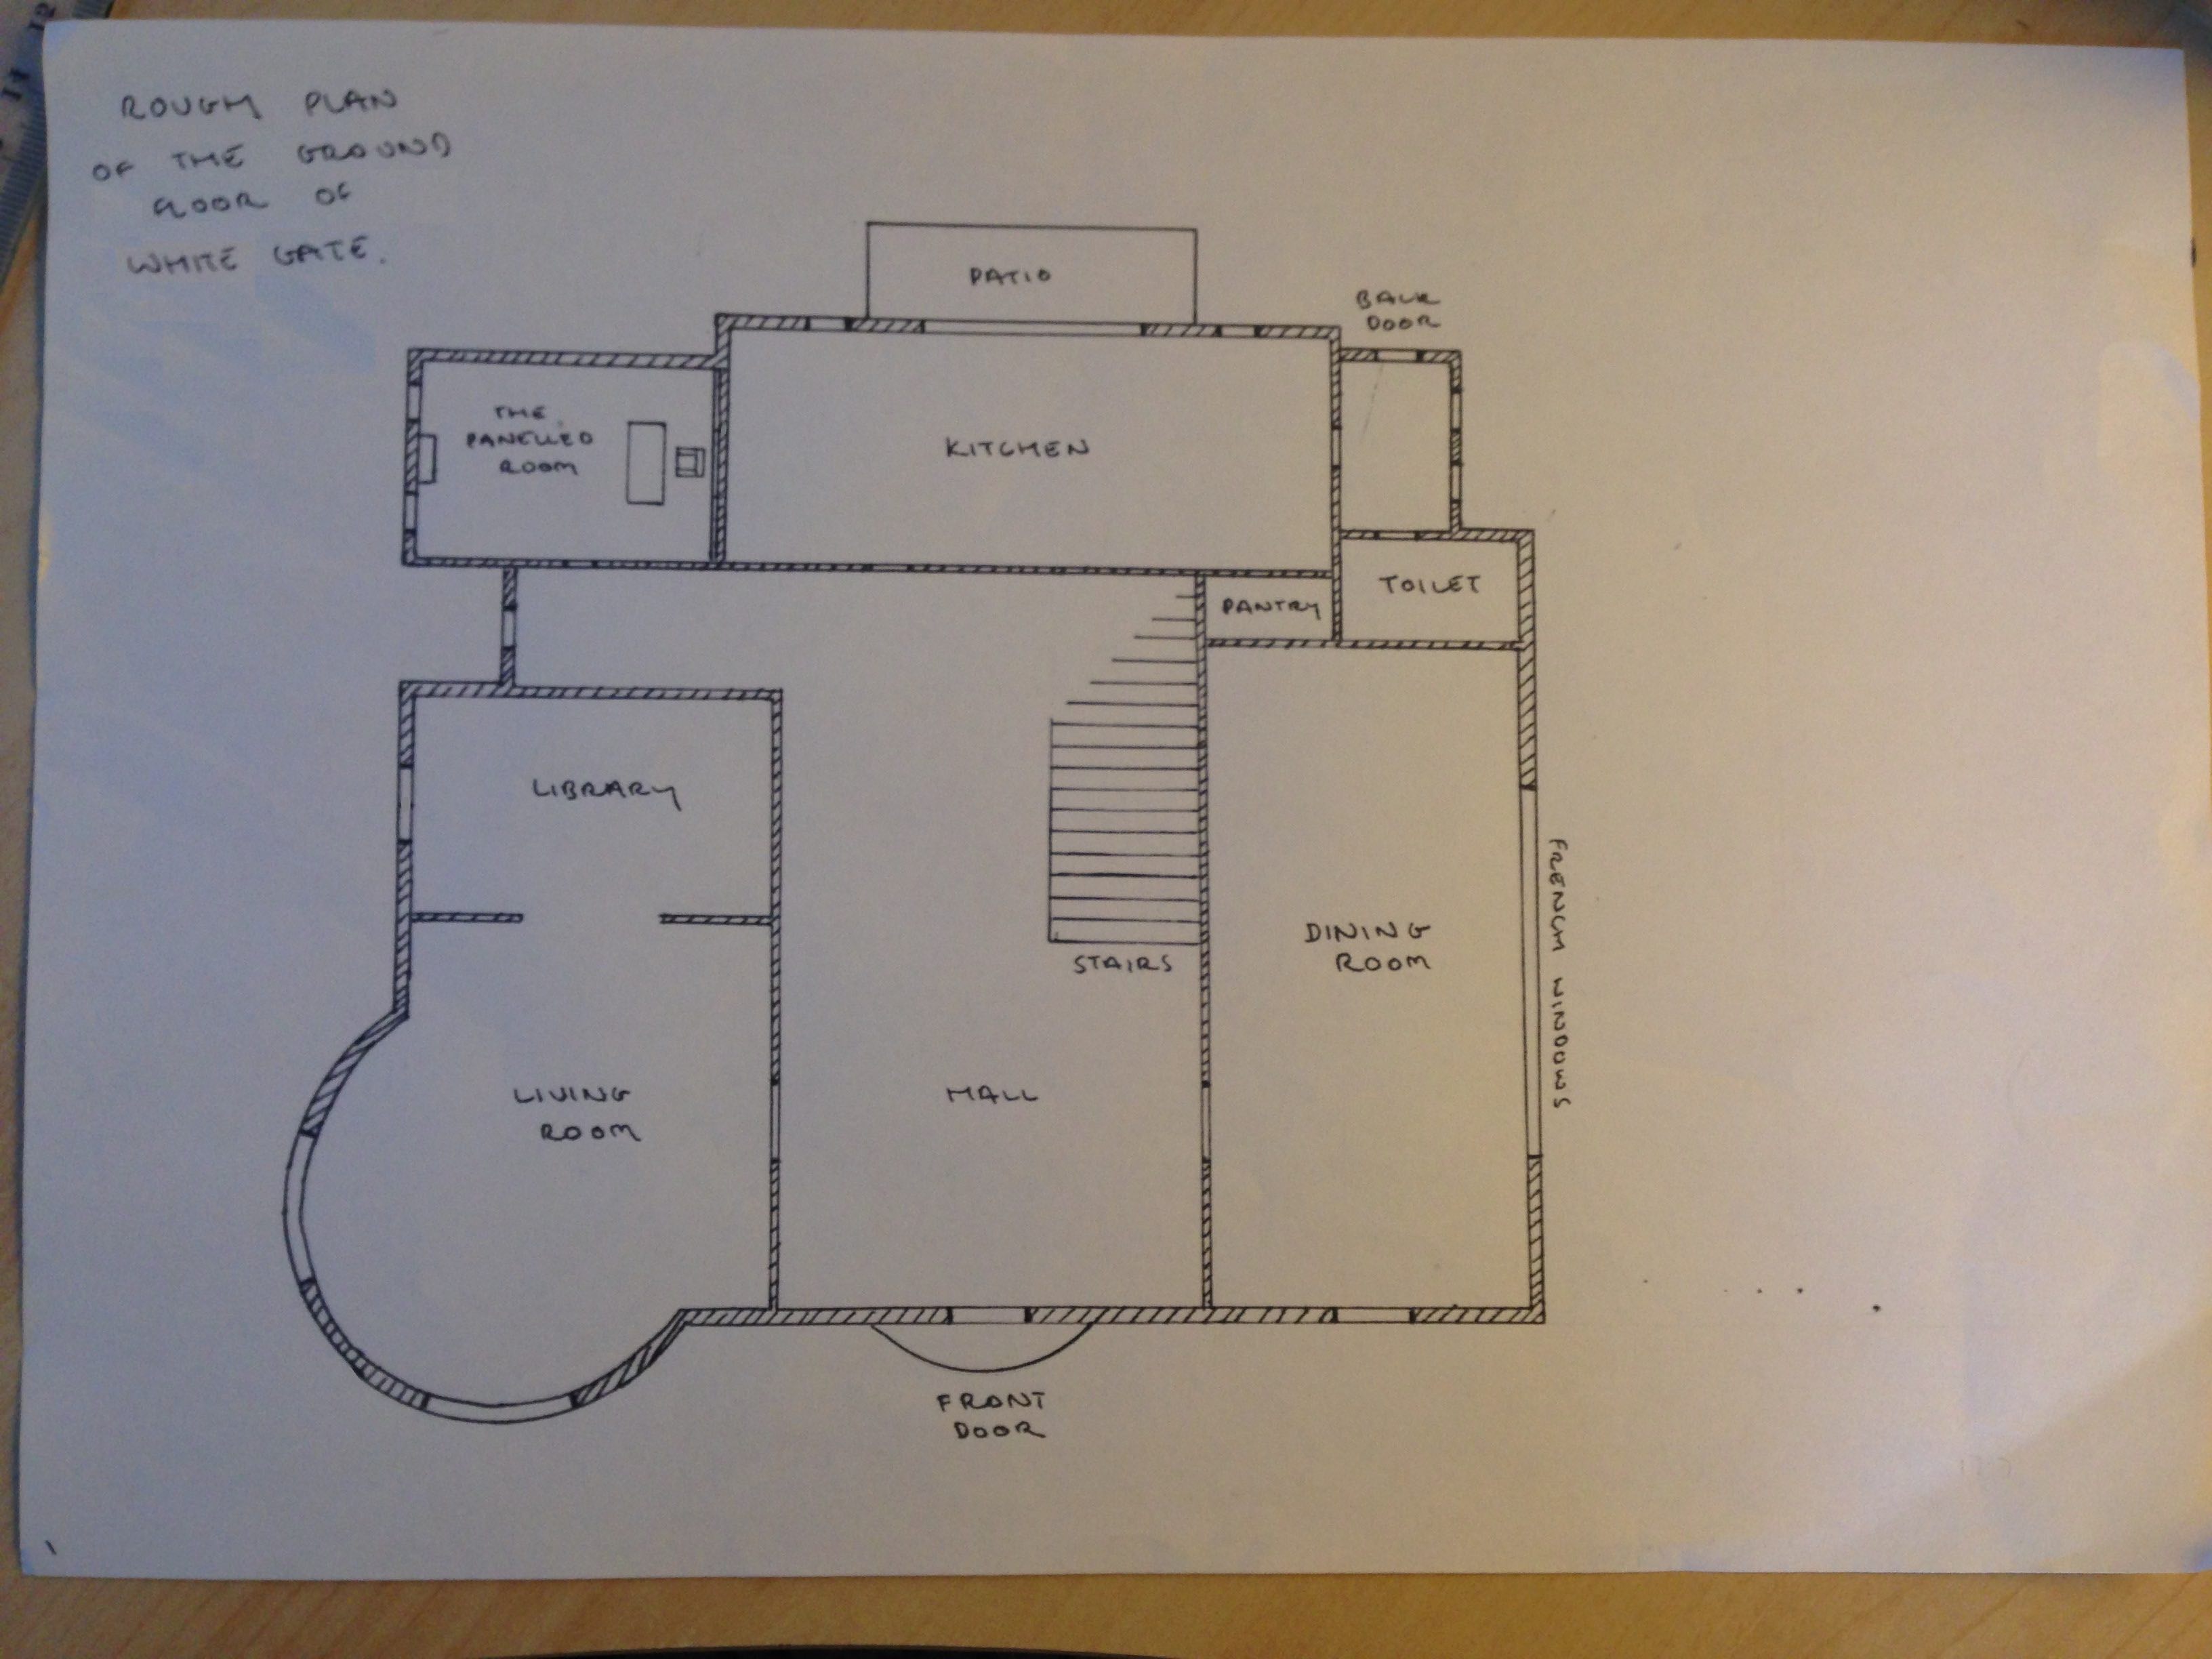 ROUGH PLAN
OF THE GROUND
FLOOR OF
WHITE GATE.
PATIO
BACK
DOOR
THE
PANELLED
ROOM
KITCHEN
PANTRY
TOILET
LIBRARY
STAIRS
DINING
ROOM
FRENCH WINDOWS
LIVING
ROOM
HALL
FRONT
DOOR
11
12